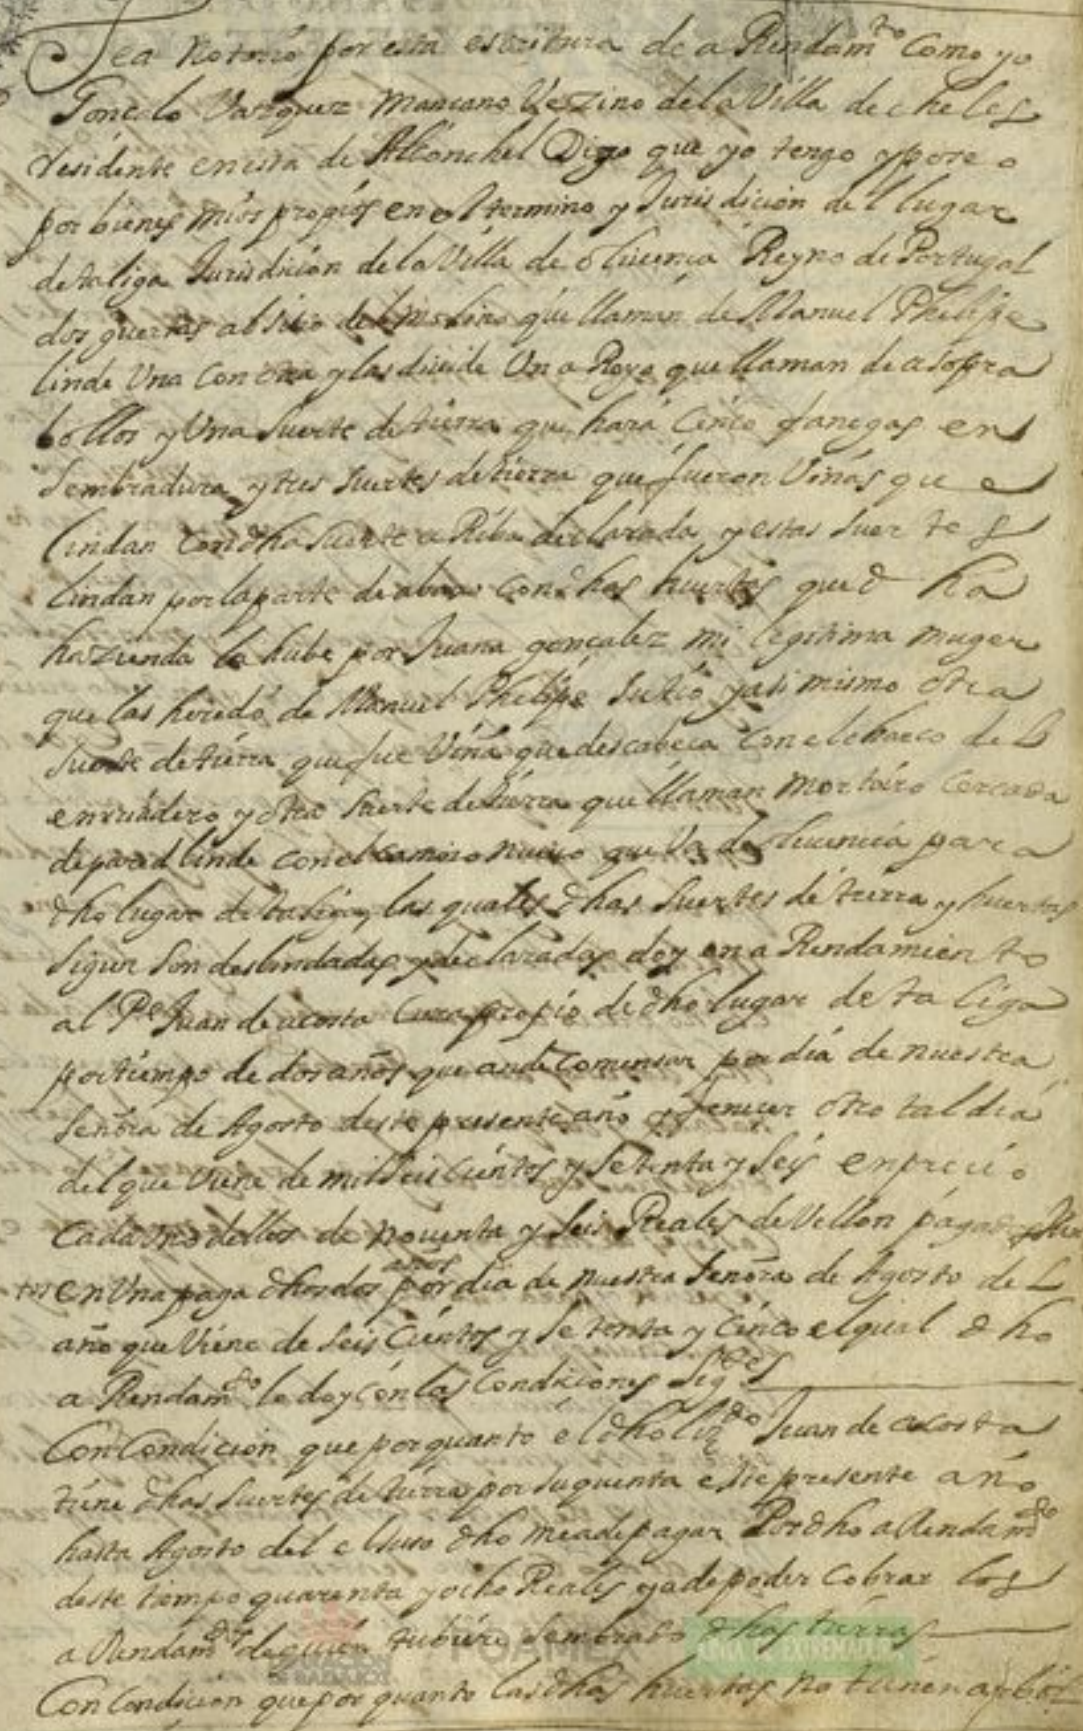 Sea notorio por esta escritura de a Rendam.to Como yo
Gonçalo Vazquez mançano Vezino de la Villa de cheles
residente en esta de Alconchel Digo que yo tengo y poseo
por bienes mios propios en el termino y Jurisdicion del lugar
de taliga Jurisdicion de la Villa de olivencia Reyno de Portugal
dos guertas al sitio del molino que llaman de Manuel Phelipe
linde Una con otra y las divide Un a Royo que llaman de asopra
bollos y Una Suerte de tierra que hara Cinco fanegas en
Sembradura y tres Suertes de tierra que fueron Viñas que
lindan con dha Suerte a Riba declarada y estas Suertes
lindan por la parte de abaxo con dhas huertas que dha
hazienda la hube por Juana gonçalez mi legitima muger
que las heredo de Manuel Phelipe Su tio y asi mismo otra
Suerte de tierra que fue Viña que descabeça con el charco del
enrriadero y otra Suerte de tierra que llaman mortairo cercada
de pared linde con el camino nuevo que Va de olivencia para
dho lugar de taliga las quales dhas Suertes de tierra y huertas
Sigun Son deslindadas y declaradas doy en a Rendamiento
al P.e Juan de acosta Cura propio de dho lugar de taliga
por tiempo de dos años que an de Comensar por dia de nuestra
Señora de Agosto deste presente año y fenecer otro tal dia
del que Viene de mil Seis Cientos y Setenta y Seis en precio
Cada Uno dellos de noventa y Seis Reales de Vellon pagados
en Una paga dhos dos años por dia de nuestra Señora de Agosto del
año que Viene de Seis Cientos y Setenta y Cinco el qual dho
a Rendam.to le doy con las Condiciones Sig.tes
Con Condicion que por quanto el dho liz.do Juan de acosta
tiene dhas Suertes de tierra por su quenta este presente año
hasta Agosto del el Suso dho me a de pagar Por dho a Rendam.to
deste tiempo quarenta y ocho Reales y a de poder Cobrar los
a Rendam.tos de quien tubiere Sembrado dhas tierras
Con Condicion que por quanto las dhas huertas no tienen arbol
FOAMEX
JUNTA DE EXTREMADURA